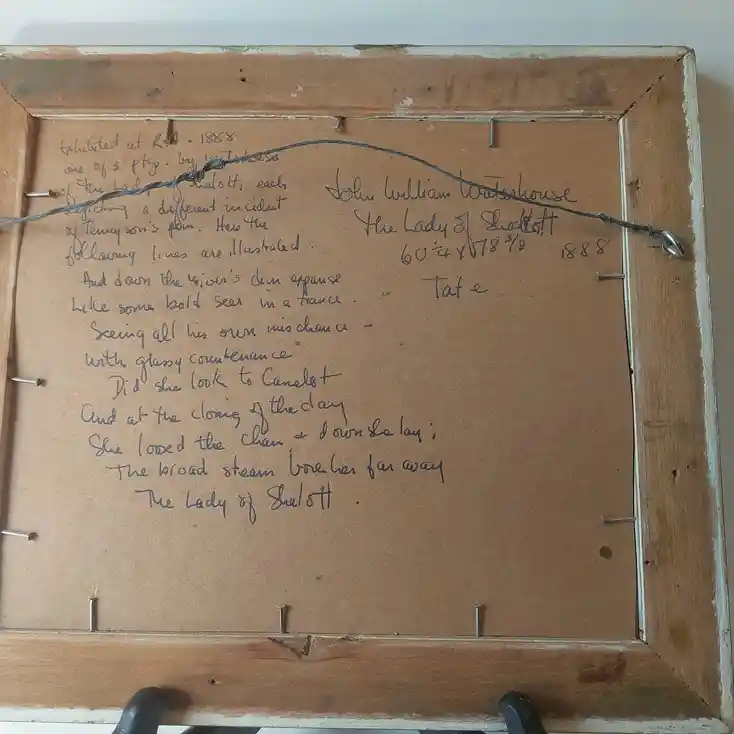 Exhibited at R.A. 1888
one of 3 ptgs. by Waterhouse
of the Lady of Shalott, each
depicting a different incident
of Tennyson's poem. Here the
following lines are illustrated:
And down the river's dim expanse
Like some bold seer in a trance.
Seeing all his own mischance -
With glassy countenance
Did she look to Camelot
And at the closing of the day
She loosed the chain & down she lay;
The broad stream bore her far away
The Lady of Shalott.
John William Waterhouse
The Lady of Shallott
60 3/4 x 78 3/8 1888
Tate